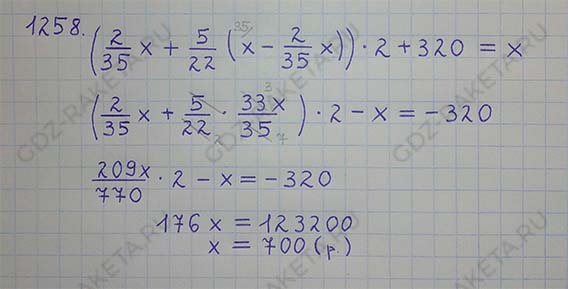 1258. (2/35 x + 5/22 (x - 2/35 x)) · 2 + 320 = x
35
(2/35 x + 5/22 · 33x/35) · 2 - x = -320
3
2 7
209x/770 · 2 - x = -320
176x = 123200
x = 700 (р.)
GDZ-RAKETA.RU